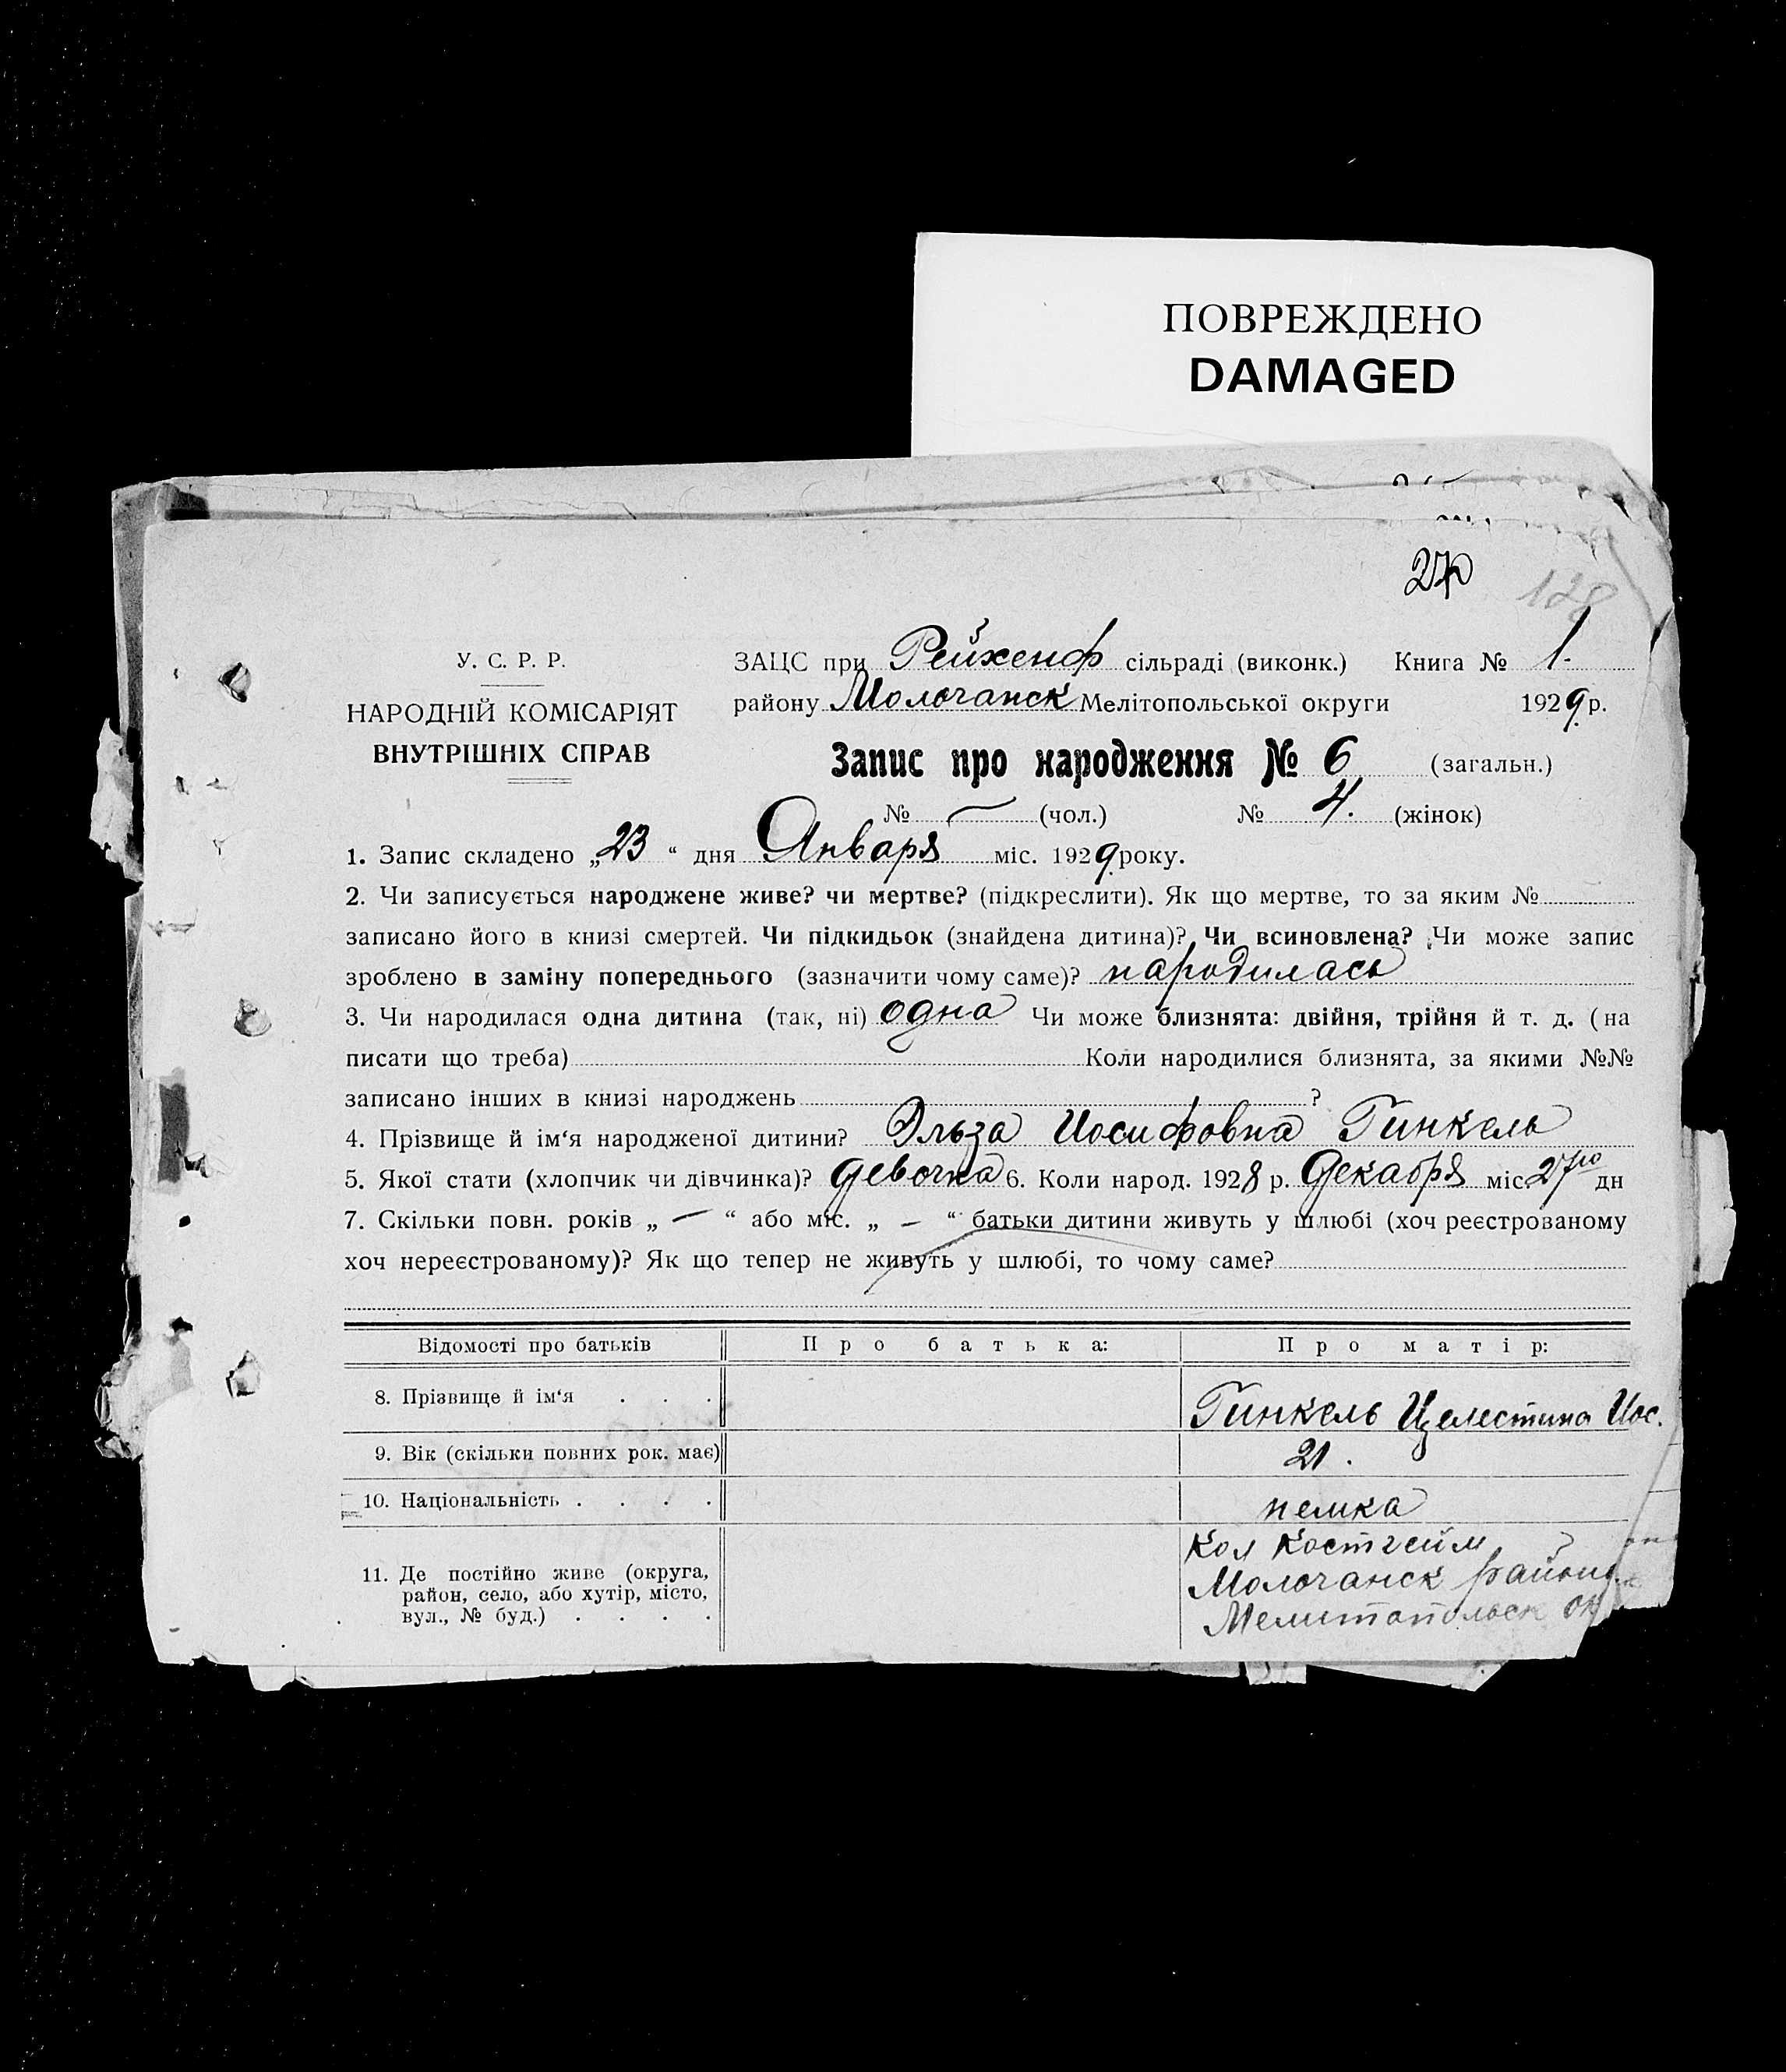 ПОВРЕЖДЕНО
DAMAGED
128
У. С. Р. Р.
НАРОДНІЙ КОМІСАРІЯТ
ВНУТРІШНІХ СПРАВ
ЗАЦС при Рейхенф сільраді (виконк.) Книга № 1.
району Молочанск Мелітопольської округи 1929 р.
Запис про народження № 6 (загальн.)
№ — (чол.) № 4. (жінок)
1. Запис складено „23“ дня Января міс. 1929 року.
2. Чи записується народжене живе? чи мертве? (підкреслити). Як що мертве, то за яким №
записано його в книзі смертей. Чи підкидьок (знайдена дитина)? Чи всиновлена? Чи може запис
зроблено в заміну попереднього (зазначити чому саме)? народилась
3. Чи народилася одна дитина (так, ні) одна Чи може близнята: двійня, трійня й т. д. (на
писати що треба) Коли народилися близнята, за якими №№
записано інших в книзі народжень ?
4. Прізвище й ім‘я народженої дитини? Эльза Иосифовна Гинкель
5. Якої стати (хлопчик чи дівчинка)? девочка 6. Коли народ. 1928 р. Декабря міс. 27го дн
7. Скільки повн. років „ — “ або міс. „ — “ батьки дитини живуть у шлюбі (хоч реєстрованому
хоч нереєстрованому)? Як що тепер не живуть у шлюбі, то чому саме?
Відомості про батьків Про батька: Про матір:
8. Прізвище й ім‘я . . . Гинкель Целестина Иос.
9. Вік (скільки повних рок. має) 21.
10. Національність . . . . немка
11. Де постійно живе (округа,
район, село, або хутір, місто,
вул., № буд.) . . . .
Кол Костгейм
Молочанск район
Мелитопольск ок